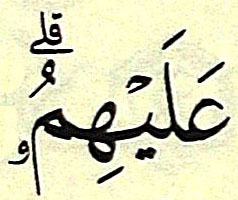 عَلَيْهِمُۥٓۗ